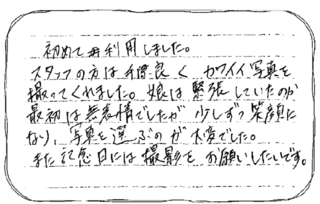 初めて利用しました。
スタッフの方は手際良く カワイイ写真を
撮ってくれました。娘は緊張していたのか
最初は無表情でしたが 少しずつ笑顔に
なり、写真を選ぶのが大変でした。
また記念日には撮影を お願いしたいです。